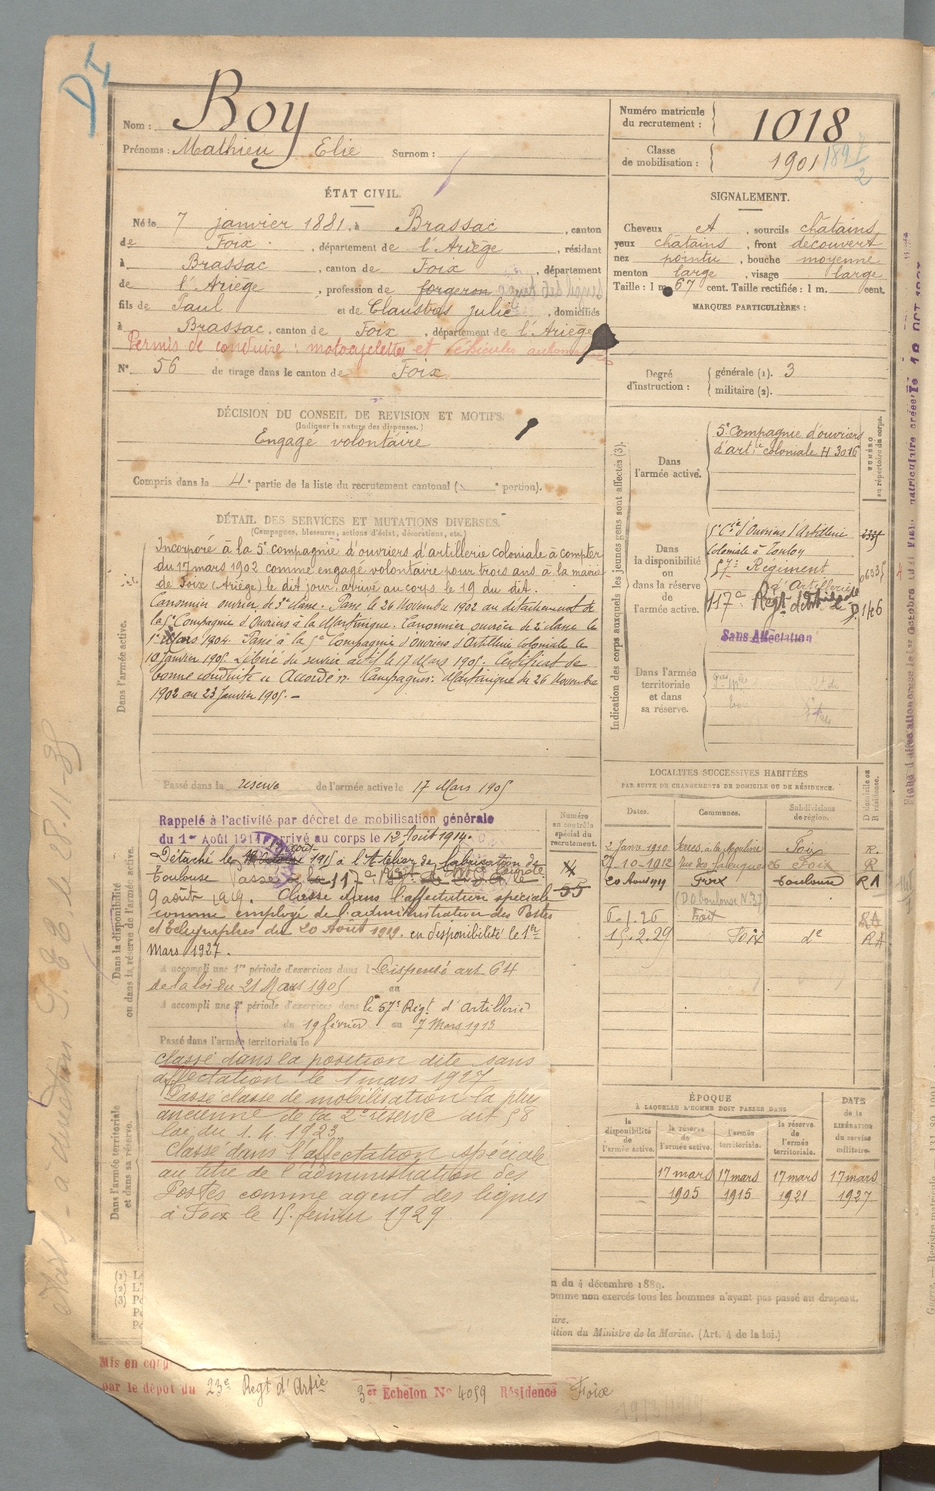 DI
Nom : Boy
Prénoms : Mathieu Elie Surnom :
Numéro matricule du recrutement : 1018
Classe de mobilisation : 1901
ÉTAT CIVIL.
Né le 7 janvier 1881, à Brassac, canton
de Foix, département de l'Ariège, résidant
à Brassac, canton de Foix, département
de l'Ariège, profession de forgeron
fils de Paul et de Claustres Julie, domiciliés
à Brassac, canton de Foix, département de l'Ariège
Permis de conduire : motocyclettes et véhicules automobiles
N° 56 de tirage dans le canton de Foix
SIGNALEMENT.
Cheveux et, sourcils châtains
yeux châtains, front découvert
nez pointu, bouche moyenne
menton large, visage large
Taille : 1 m. 67 cent. Taille rectifiée : 1 m. cent.
MARQUES PARTICULIÈRES :
Degré d'instruction : générale (1). 3
militaire (2).
DÉCISION DU CONSEIL DE REVISION ET MOTIFS.
(Indiquer la nature des dispenses.)
Engagé volontaire
Compris dans la 4e partie de la liste du recrutement cantonal ( e portion).
DÉTAIL DES SERVICES ET MUTATIONS DIVERSES.
(Campagnes, blessures, actions d'éclat, décorations, etc.)
Dans l'armée active.
Incorporé à la 5e compagnie d'ouvriers d'artillerie coloniale à compter
du 17 mars 1902 comme engagé volontaire pour trois ans à la mairie
de Foix (Ariège) le dit jour, arrivé au corps le 19 du dit.
Canonnier ouvrier de 3e classe. Passé le 26 Novembre 1902 au détachement de
la Compagnie d'Ouvriers à la Martinique. Canonnier ouvrier de 2e classe le
1er Mars 1904. Passé à la 5e Compagnie d'Ouvriers d'Artillerie Coloniale le
Janvier 1905. Libéré du service actif le 17 Mars 1905. Certificat de
bonne conduite « Accordé ». Campagnes : Martinique du 26 Novembre
1902 au 23 Janvier 1905. -
Passé dans la réserve de l'armée active le 17 Mars 1905
Indication des corps auxquels les jeunes gens sont affectés (3).
NUMÉRO au répertoire du corps.
Dans l'armée active.
5e Compagnie d'ouvriers
d'artie coloniale H 3016
Dans la disponibilité ou dans la réserve de l'armée active.
5e Cie d'Ouvriers d'Artillerie
Coloniale à Toulon
57e Régiment
d'Artillerie
117e Regt d'Artie
Sans Affectation
Dans l'armée territoriale et dans sa réserve.
LOCALITÉS SUCCESSIVES HABITÉES
PAR SUITE DE CHANGEMENTS DE DOMICILE OU DE RÉSIDENCE.
Dates. Communes. Subdivisions de région. D domicile ou R résidence.
2 Janv 1910 Foix R.
27-10-1912 26 Foix R
20 Août 1919 Foix Toulouse RA
6.1.26 Foix RA
15.2.29 Foix do RA
Dans la disponibilité ou dans la réserve de l'armée active.
Numéro au contrôle spécial du recrutement.
Rappelé à l'activité par décret de mobilisation générale
du 1er Août 1914 arrivé au corps le 12 Août 1914.
Détaché le 1915 à l'Atelier de fabrication de
Toulouse Passé le 117e Regt d'Artie Lourde le
9 août 1919. Classé dans l'affectation spéciale
comme employé de l'administration des Postes
et Télégraphes du 20 Août 1919. en disponibilité le 1er
Mars 1927.
A accompli une 1re période d'exercices dans Dispensé art 64
de la loi du 21 Mars 1905 au
A accompli une 2e période d'exercices dans le 57e Régt d'Artillerie
du 19 février au 7 Mars 1913
Passé dans l'armée territoriale le
Dans l'armée territoriale et dans sa réserve.
Classé dans la position dite sans
affectation le 1 mars 1927
Passé classe de mobilisation la plus
ancienne de la 2e réserve art 58
loi du 1.4.1923
Classé dans l'affectation spéciale
au titre de l'administration des
Postes comme agent des lignes
à Foix le 15 février 1929.
ÉPOQUE
À LAQUELLE L'HOMME DOIT PASSER DANS
la disponibilité de l'armée active. la réserve de l'armée active. l'armée territoriale. la réserve de l'armée territoriale. DATE de la LIBÉRATION du service militaire.
17 mars 17 mars 17 mars 17 mars
1905 1915 1921 1927
n du 4 décembre 1889.
omme non exercés tous les hommes n'ayant pas passé au drapeau.
ition du Ministre de la Marine. (Art. 4 de la loi.)
Mis en
par le dépôt du 23e Regt d'Artie 3er Échelon N° 4059 Résidence Foix